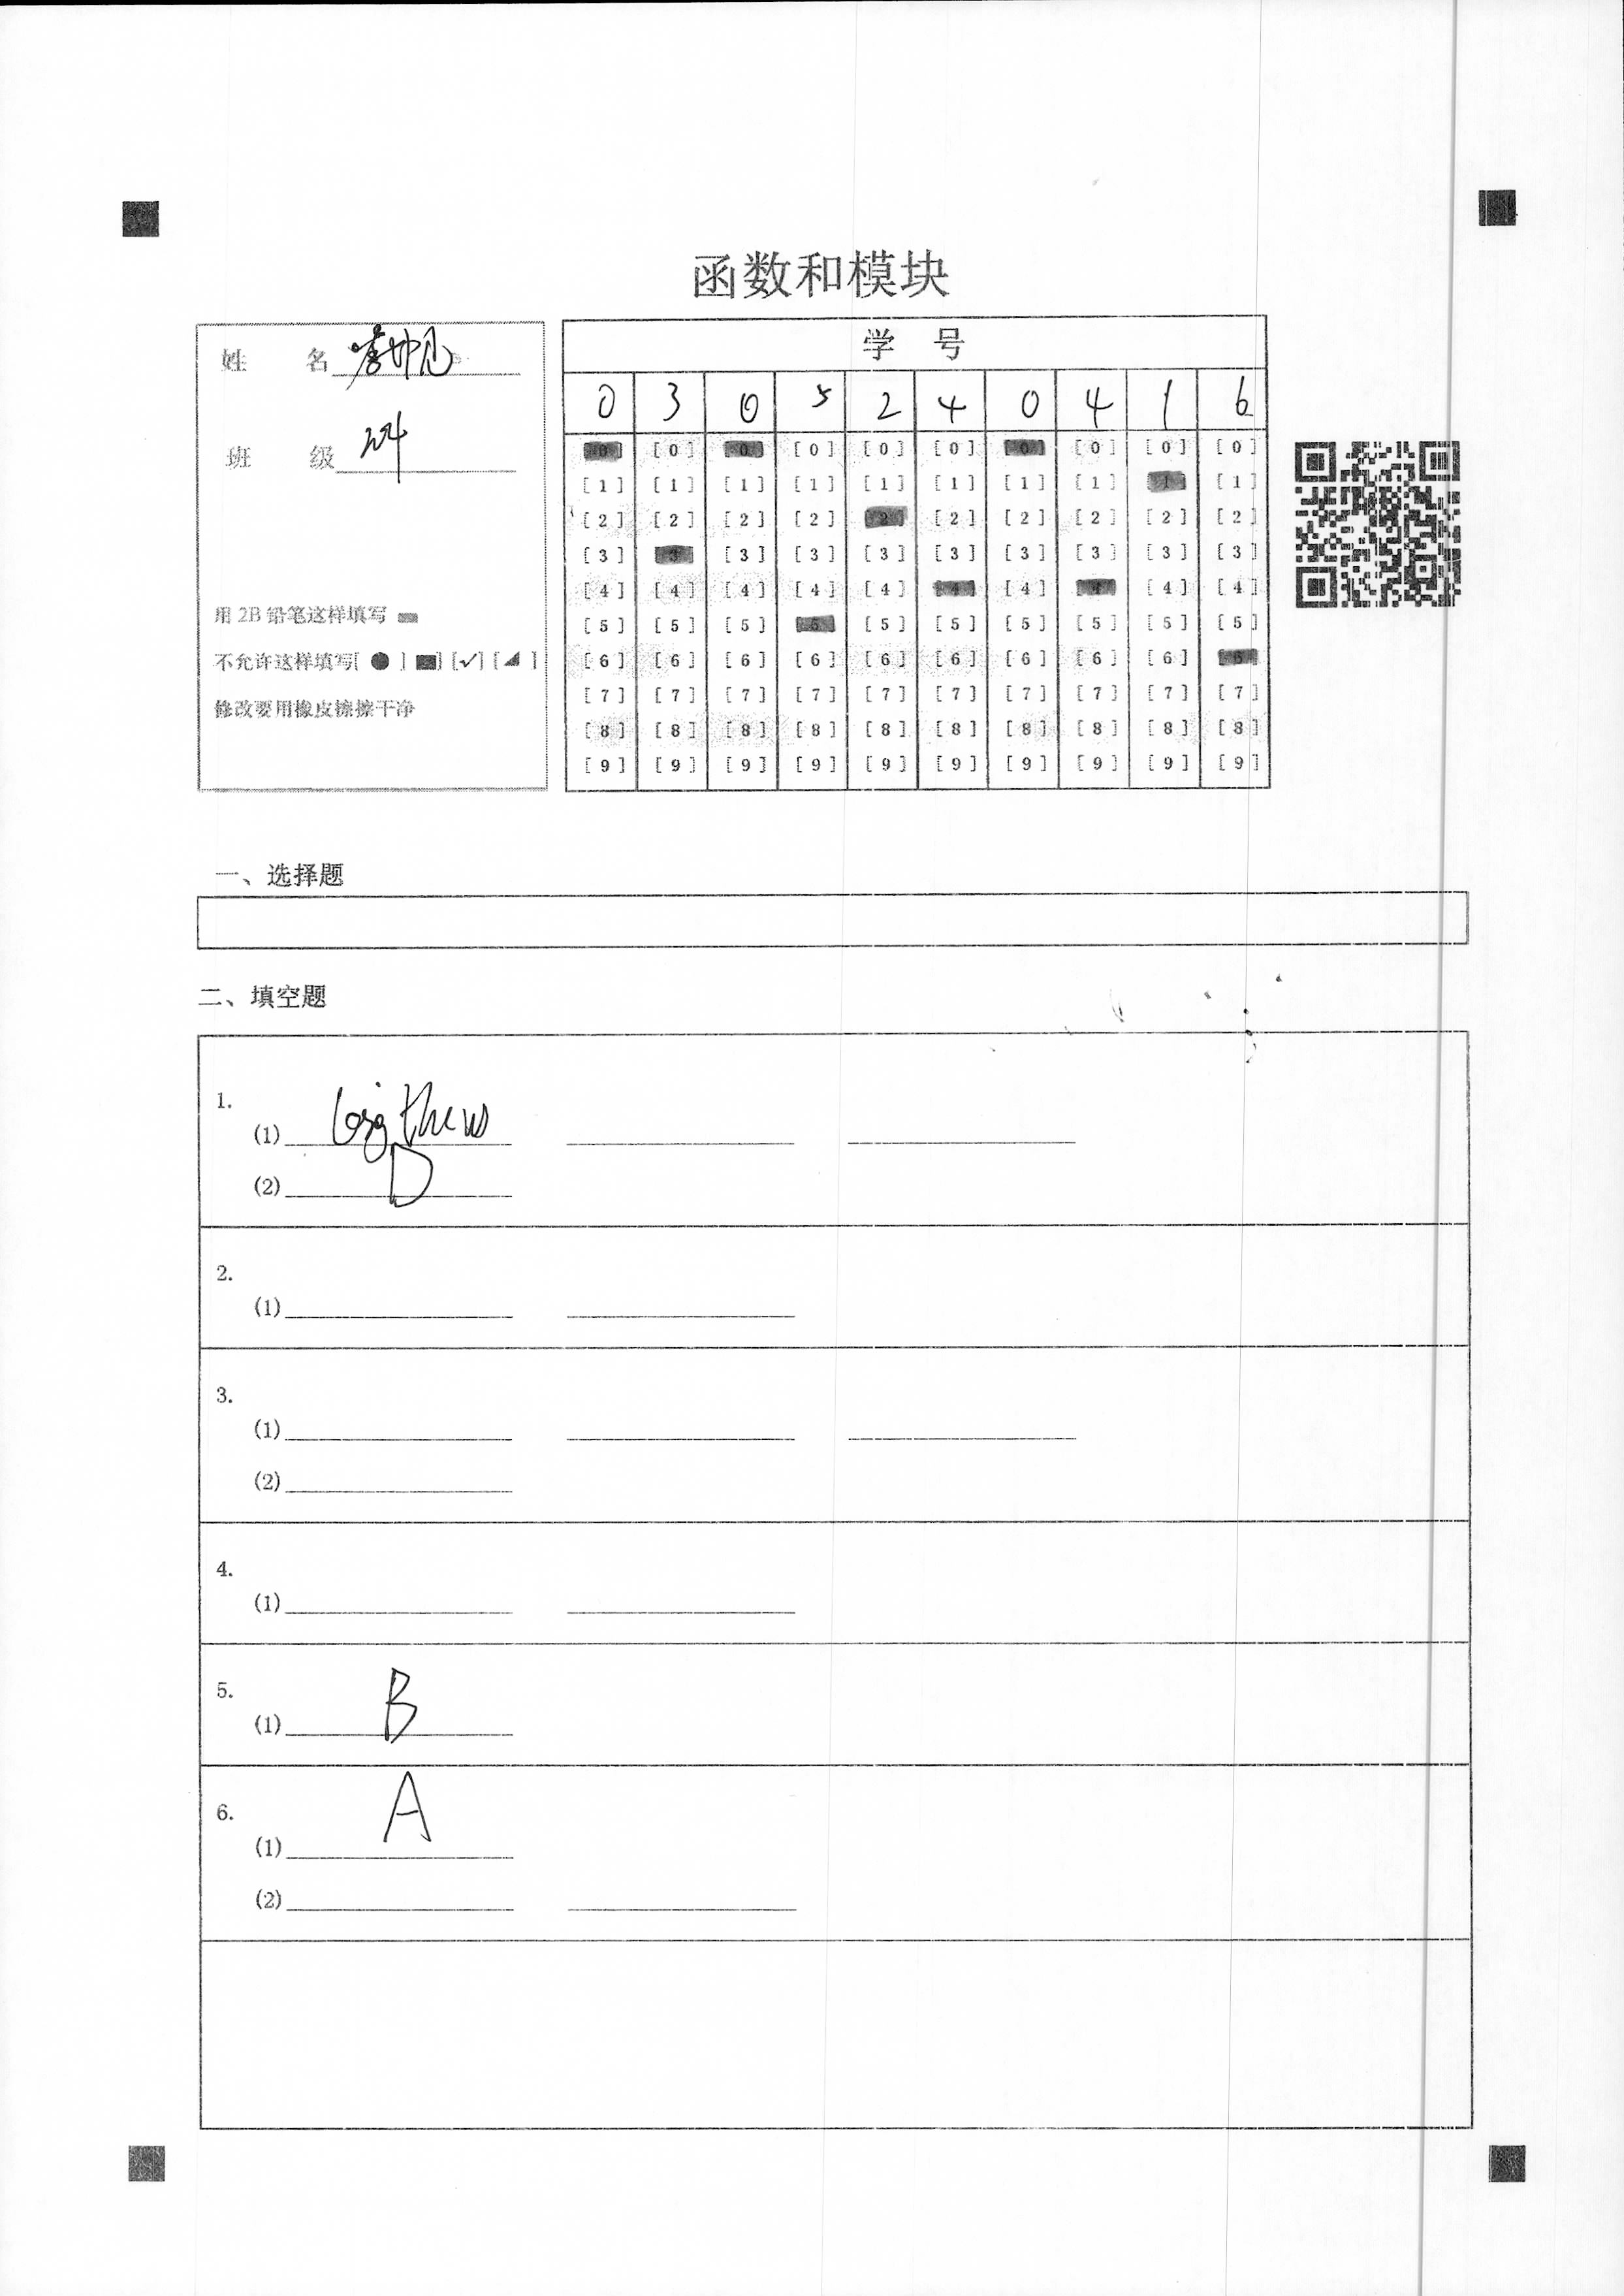 函数和模块
姓 名
班 级
用 2B 铅笔这样填写
不允许这样填写[ ● ] [■] [✓] [◢ ]
修改要用橡皮擦擦干净
学 号
0 3 0 5 2 4 0 4 1 6
[0] [0] [0] [0] [0] [0] [0] [0] [0] [0]
[1] [1] [1] [1] [1] [1] [1] [1] [1] [1]
[2] [2] [2] [2] [2] [2] [2] [2] [2] [2]
[3] [3] [3] [3] [3] [3] [3] [3] [3] [3]
[4] [4] [4] [4] [4] [4] [4] [4] [4] [4]
[5] [5] [5] [5] [5] [5] [5] [5] [5] [5]
[6] [6] [6] [6] [6] [6] [6] [6] [6] [6]
[7] [7] [7] [7] [7] [7] [7] [7] [7] [7]
[8] [8] [8] [8] [8] [8] [8] [8] [8] [8]
[9] [9] [9] [9] [9] [9] [9] [9] [9] [9]
一、选择题
二、填空题
1.
(1)
(2) D
2.
(1)
3.
(1)
(2)
4.
(1)
5.
(1) B
6.
(1) A
(2)